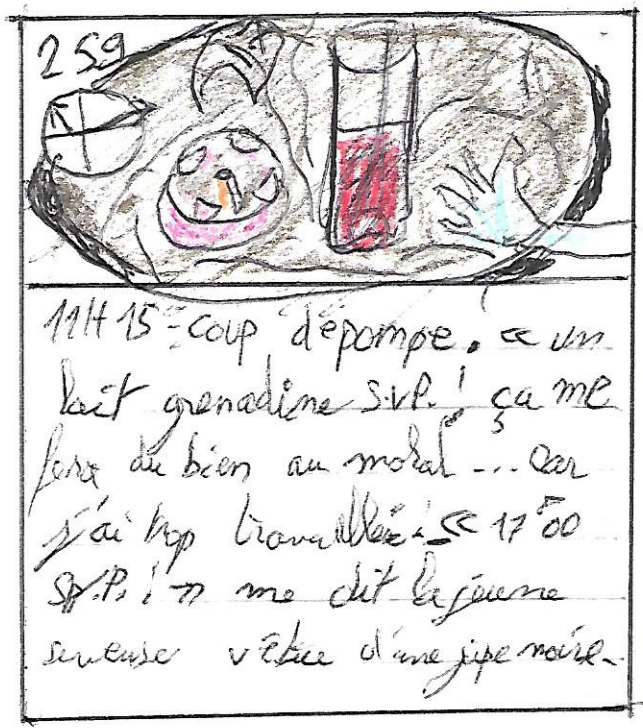 259
11H15 - coup de pompe. « un
lait grenadine S.V.P. ! ça me
fera du bien au moral... car
j'ai trop travaillé. « 17 F 00
S.V.P. ! » me dit la jeune
serveuse vêtue d'une jupe noire.